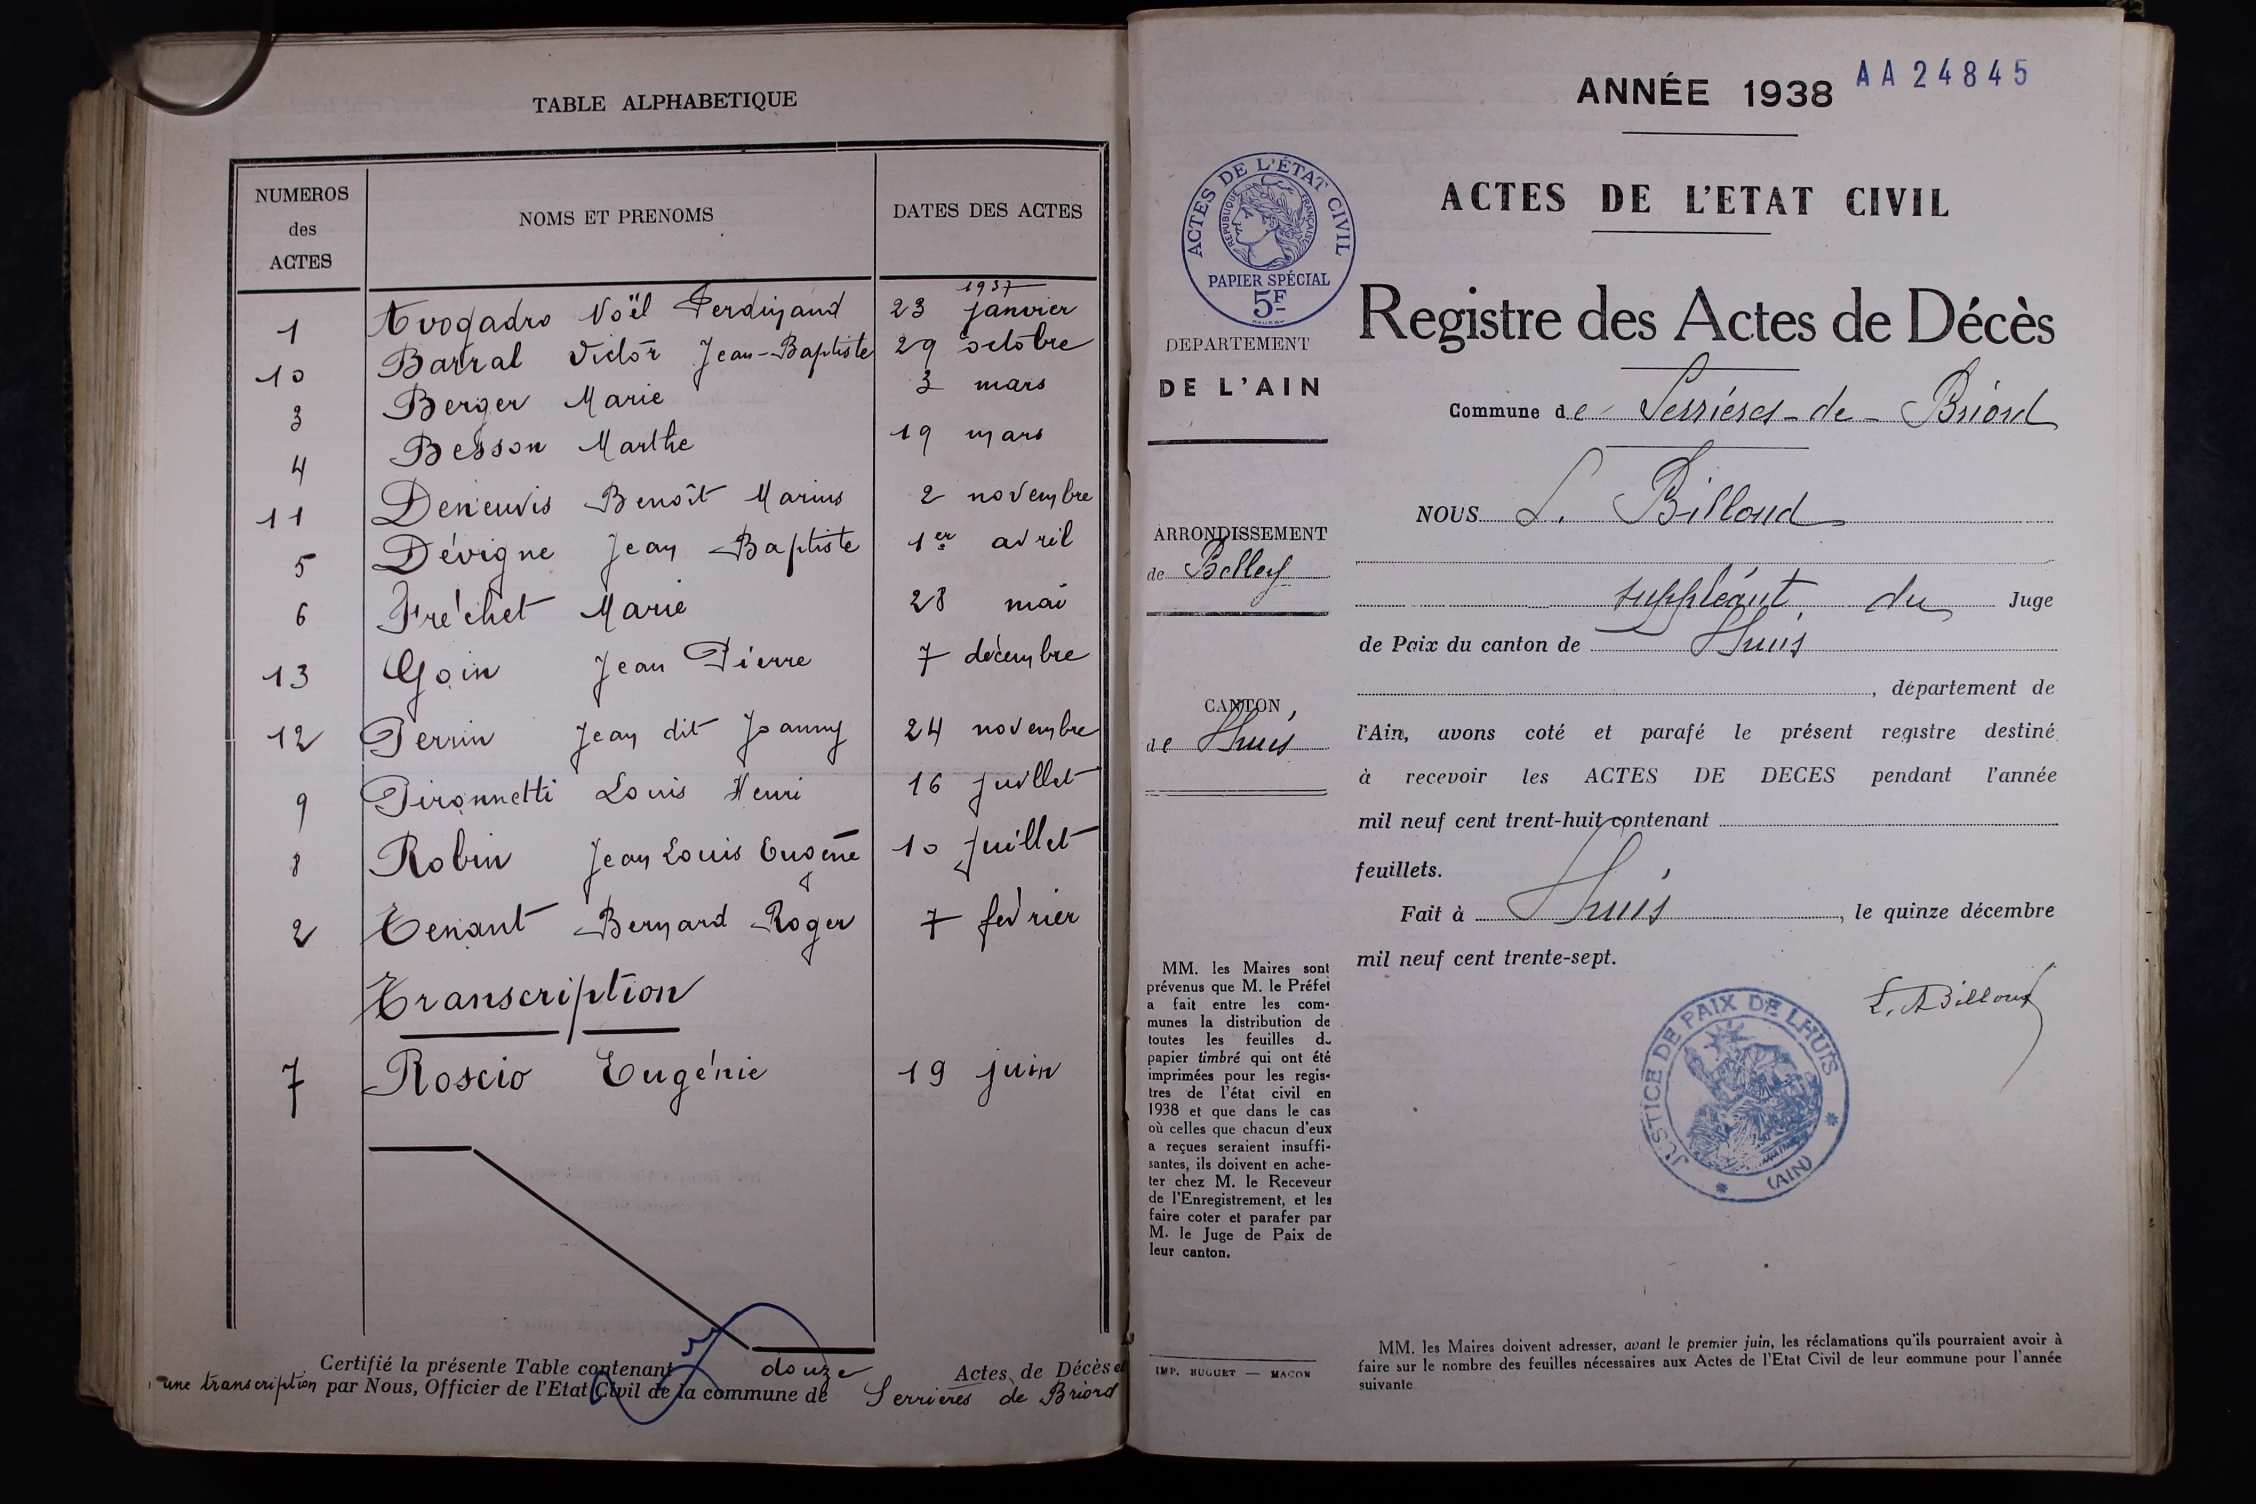 TABLE ALPHABETIQUE
NUMEROS
des
ACTES
NOMS ET PRENOMS
DATES DES ACTES
1937
1 Avogadro Noël Ferdinand 23 janvier
10 Barral Victor Jean-Baptiste 29 octobre
3 Berger Marie 3 mars
4 Besson Marthe 19 mars
11 Deneuvis Benoît Marius 2 novembre
5 Dévigne Jean Baptiste 1er avril
6 Fréchet Marie 28 mai
13 Goin Jean Pierre 7 décembre
12 Perrin Jean dit Joanny 24 novembre
9 Pironnetti Louis Henri 16 juillet
8 Robin Jean Louis Eugène 10 juillet
2 Tenant Bernard Roger 7 février
Transcription
7 Roscio Eugénie 19 juin
Certifié la présente Table contenant douze Actes de Décès et
une transcription par Nous, Officier de l'Etat Civil de la commune de Serrières de Briord
AA 24845
ANNÉE 1938
ACTES DE L'ETAT CIVIL
ACTES DE L'ÉTAT CIVIL
RÉPUBLIQUE FRANÇAISE
PAPIER SPÉCIAL
5F
DEPARTEMENT
DE L'AIN
ARRONDISSEMENT
de Belley
CANTON
de Lhuis
MM. les Maires sont
prévenus que M. le Préfet
a fait entre les com-
munes la distribution de
toutes les feuilles d
papier timbré qui ont été
imprimées pour les regis-
tres de l'état civil en
1938 et que dans le cas
où celles que chacun d'eux
a reçues seraient insuffi-
santes, ils doivent en ache-
ter chez M. le Receveur
de l'Enregistrement, et les
faire coter et parafer par
M. le Juge de Paix de
leur canton.
IMP. HUGUET — MACON
Registre des Actes de Décès
Commune de Serrières-de-Briord
NOUS L. Billoud
suppléant du Juge
de Paix du canton de Lhuis
, département de
l'Ain, avons coté et parafé le présent registre destiné
à recevoir les ACTES DE DECES pendant l'année
mil neuf cent trent-huit contenant
feuillets.
Fait à Lhuis, le quinze décembre
mil neuf cent trente-sept.
L. Billoud
JUSTICE DE PAIX DE LHUIS
(AIN)
MM. les Maires doivent adresser, avant le premier juin, les réclamations qu'ils pourraient avoir à
faire sur le nombre des feuilles nécessaires aux Actes de l'Etat Civil de leur commune pour l'année
suivante